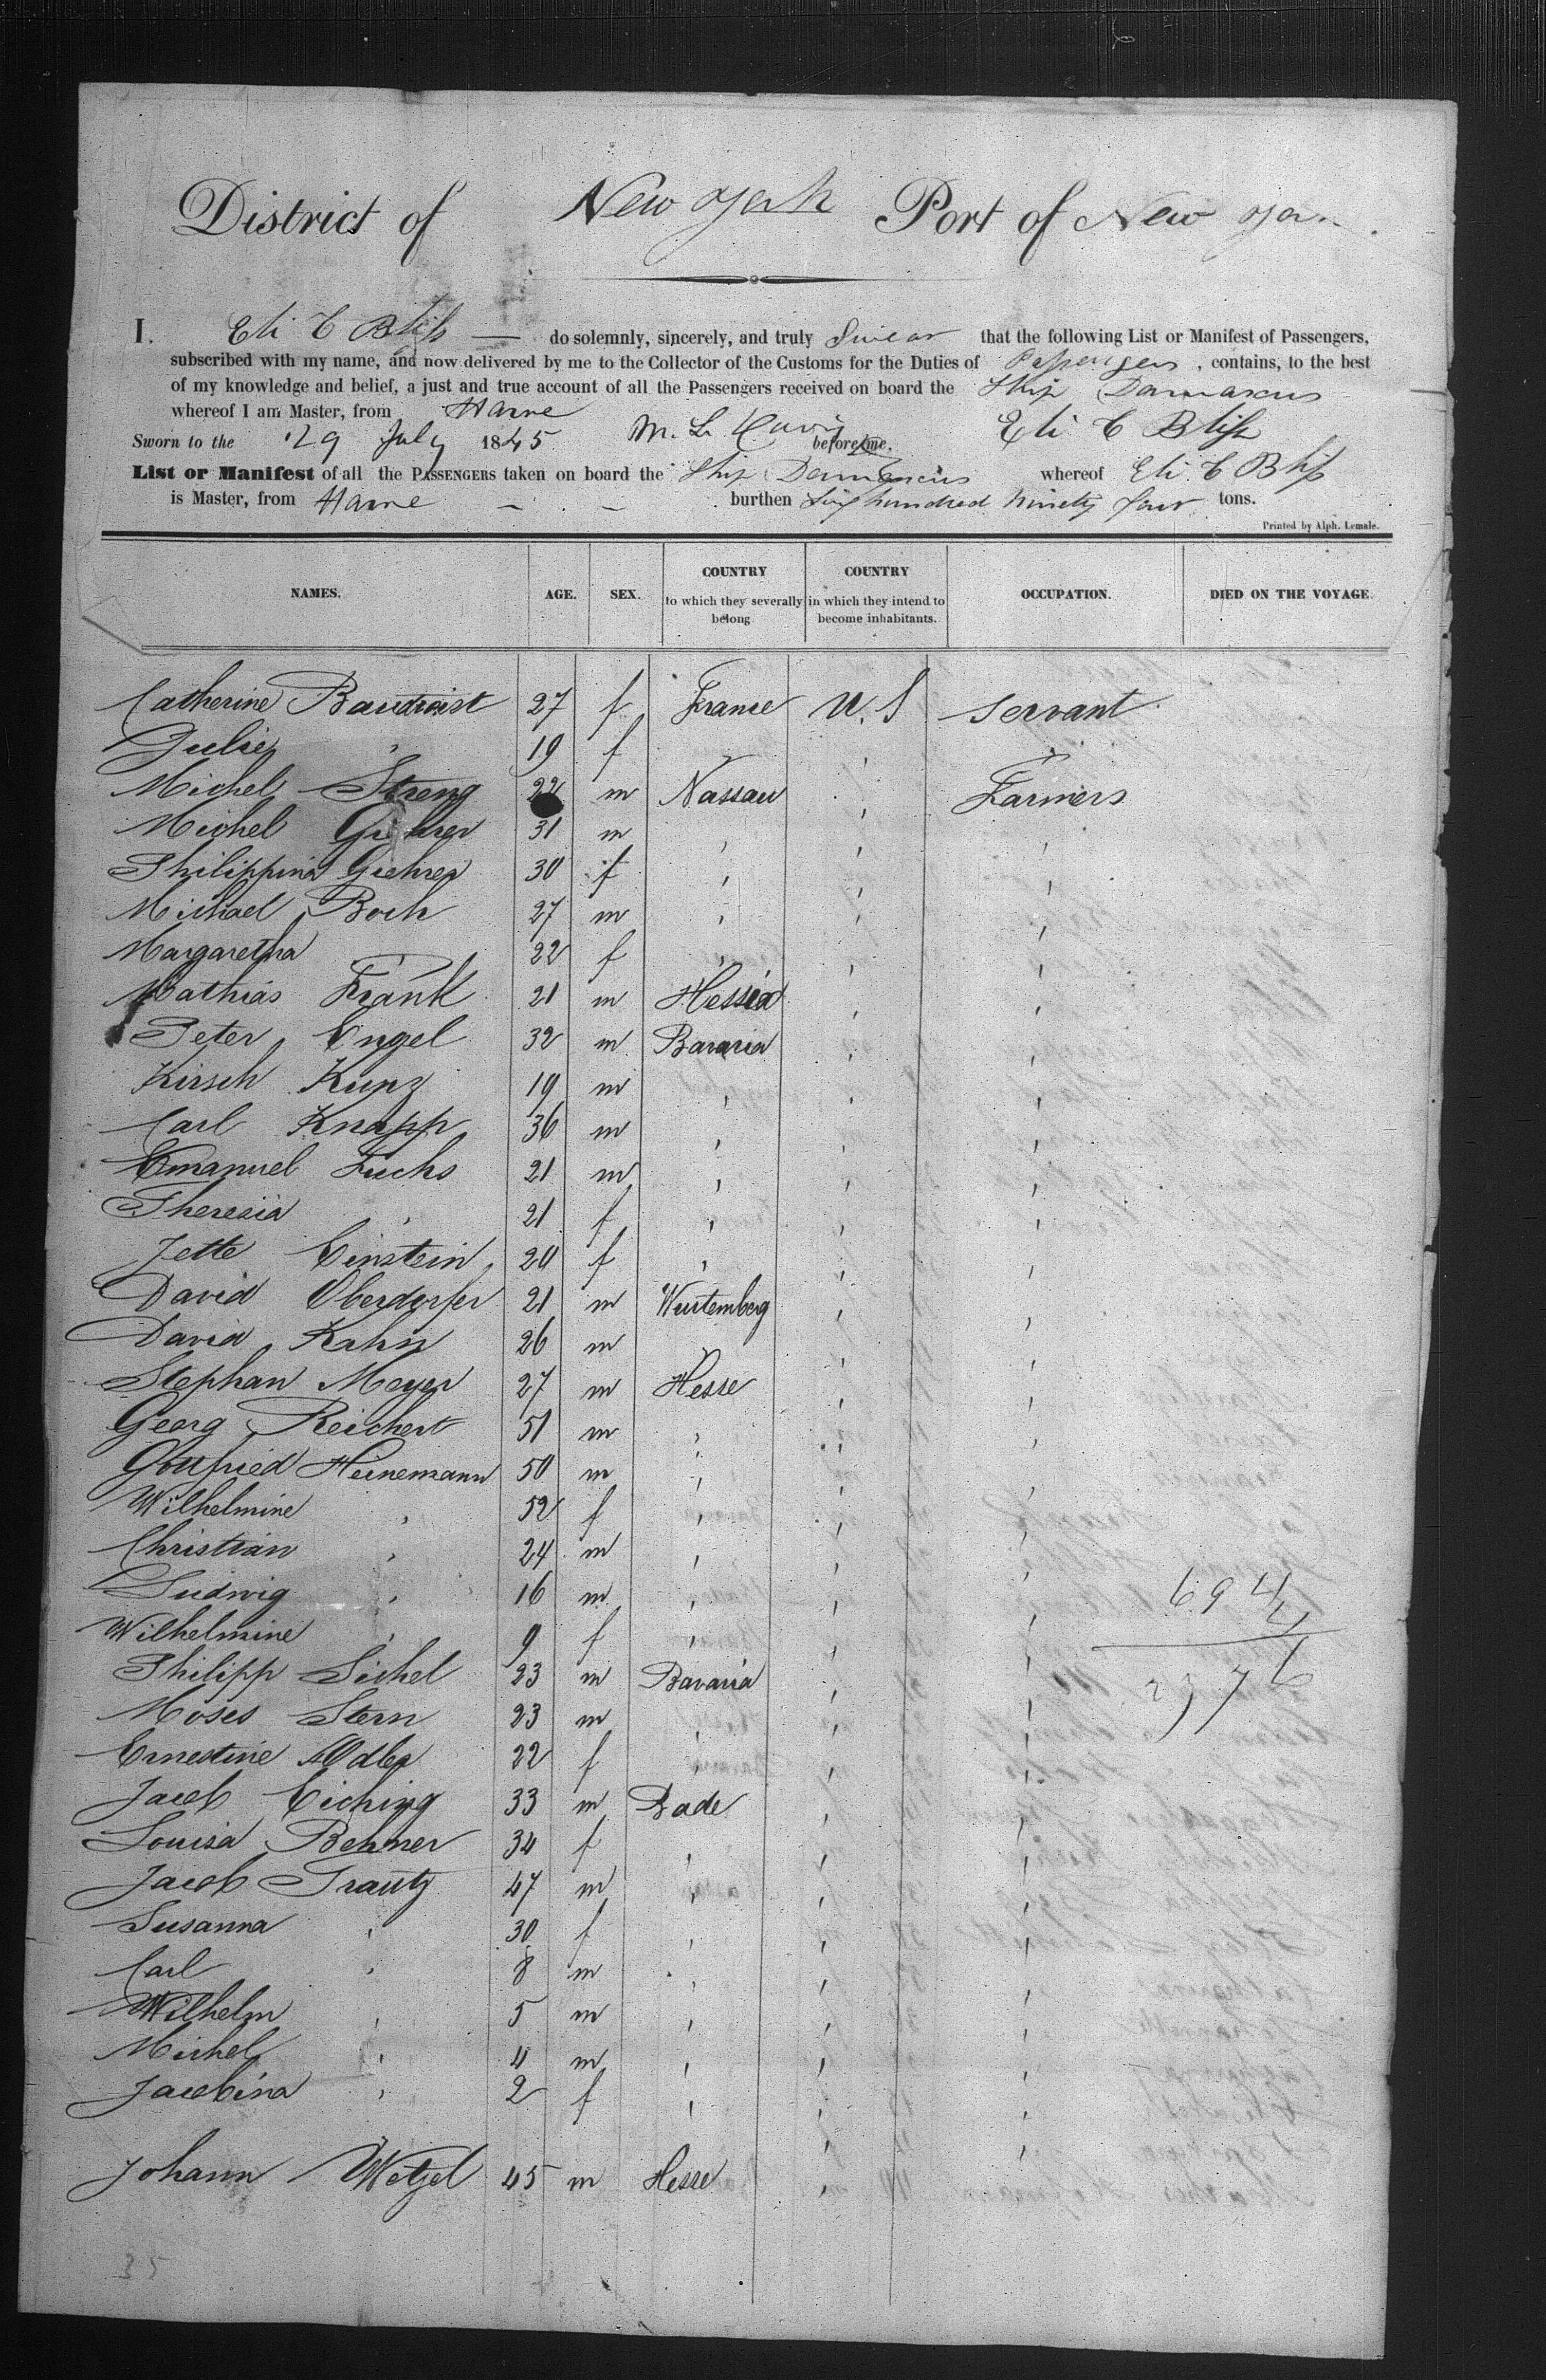 District of New York Port of New York
I. Eli C Bliss — do solemnly, sincerely, and truly swear that the following List or Manifest of Passengers,
subscribed with my name, and now delivered by me to the Collector of the Customs for the Duties of Passengers, contains, to the best
of my knowledge and belief, a just and true account of all the Passengers received on board the Ship Damascus
whereof I am Master, from Havre
Sworn to the 29 July 1845 before me. Eli C Bliss
List or Manifest of all the PASSENGERS taken on board the Ship Damascus whereof Eli C Bliss
is Master, from Havre burthen Six hundred ninety four tons.
Printed by Alph. Lemale.
NAMES. AGE. SEX. COUNTRY to which they severally belong COUNTRY in which they intend to become inhabitants. OCCUPATION. DIED ON THE VOYAGE.
Catherine 27 f France U.S servant
Julie " 19 f " "
Michel Streng 22 m Nassau " Farmers
Michel 31 m " " "
Philippina Giehrer 30 f " " "
Michael Boch 27 m " " "
Margaretha " 22 f " " "
Mathias Frank 21 m Hessia " "
Peter Engel 32 m Bavaria " "
Kirsch Kunz 19 m " " "
Carl Knapp 36 m " " "
Emanuel Fuchs 21 m " " "
Theresia " 21 f " " "
Jette Einstein 20 f " " "
David Oberdorfer 21 m Wurtemberg " "
David Kahn 26 m " " "
Stephan Meyer 27 m Hesse " "
Georg Reichert 51 m " " "
Gottfried Heinemann 50 m " " "
Wilhelmine " 52 f " " "
Christian " 24 m " " "
Ludwig " 16 m " " " 694
Wilhelmine " 9 f " " "
Philipp Sichel 23 m Bavaria " "
Moses Stern 23 m " " "
Ernestine Adler 22 f " " "
Jacob Eiching 33 m Bade " "
Louisa Behmer 34 f " " "
Jacob Trautz 47 m " " "
Susanna " 30 f " " "
Carl " 8 m " " "
Wilhelm " 5 m " " "
Michel " 4 m " " "
Jacobina " 2 f " " "
Johann Wetzel 45 m Hesse " "
35